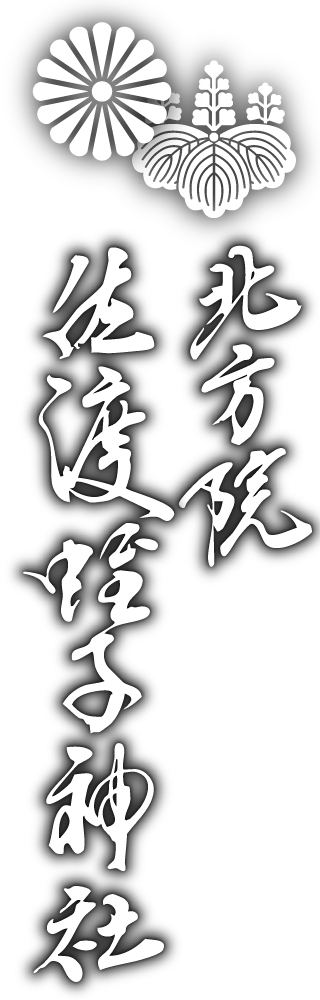 北方院
佐渡蛭子神社